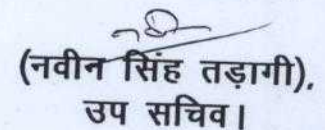 (नवीन सिंह तड़ागी),
उप सचिव।